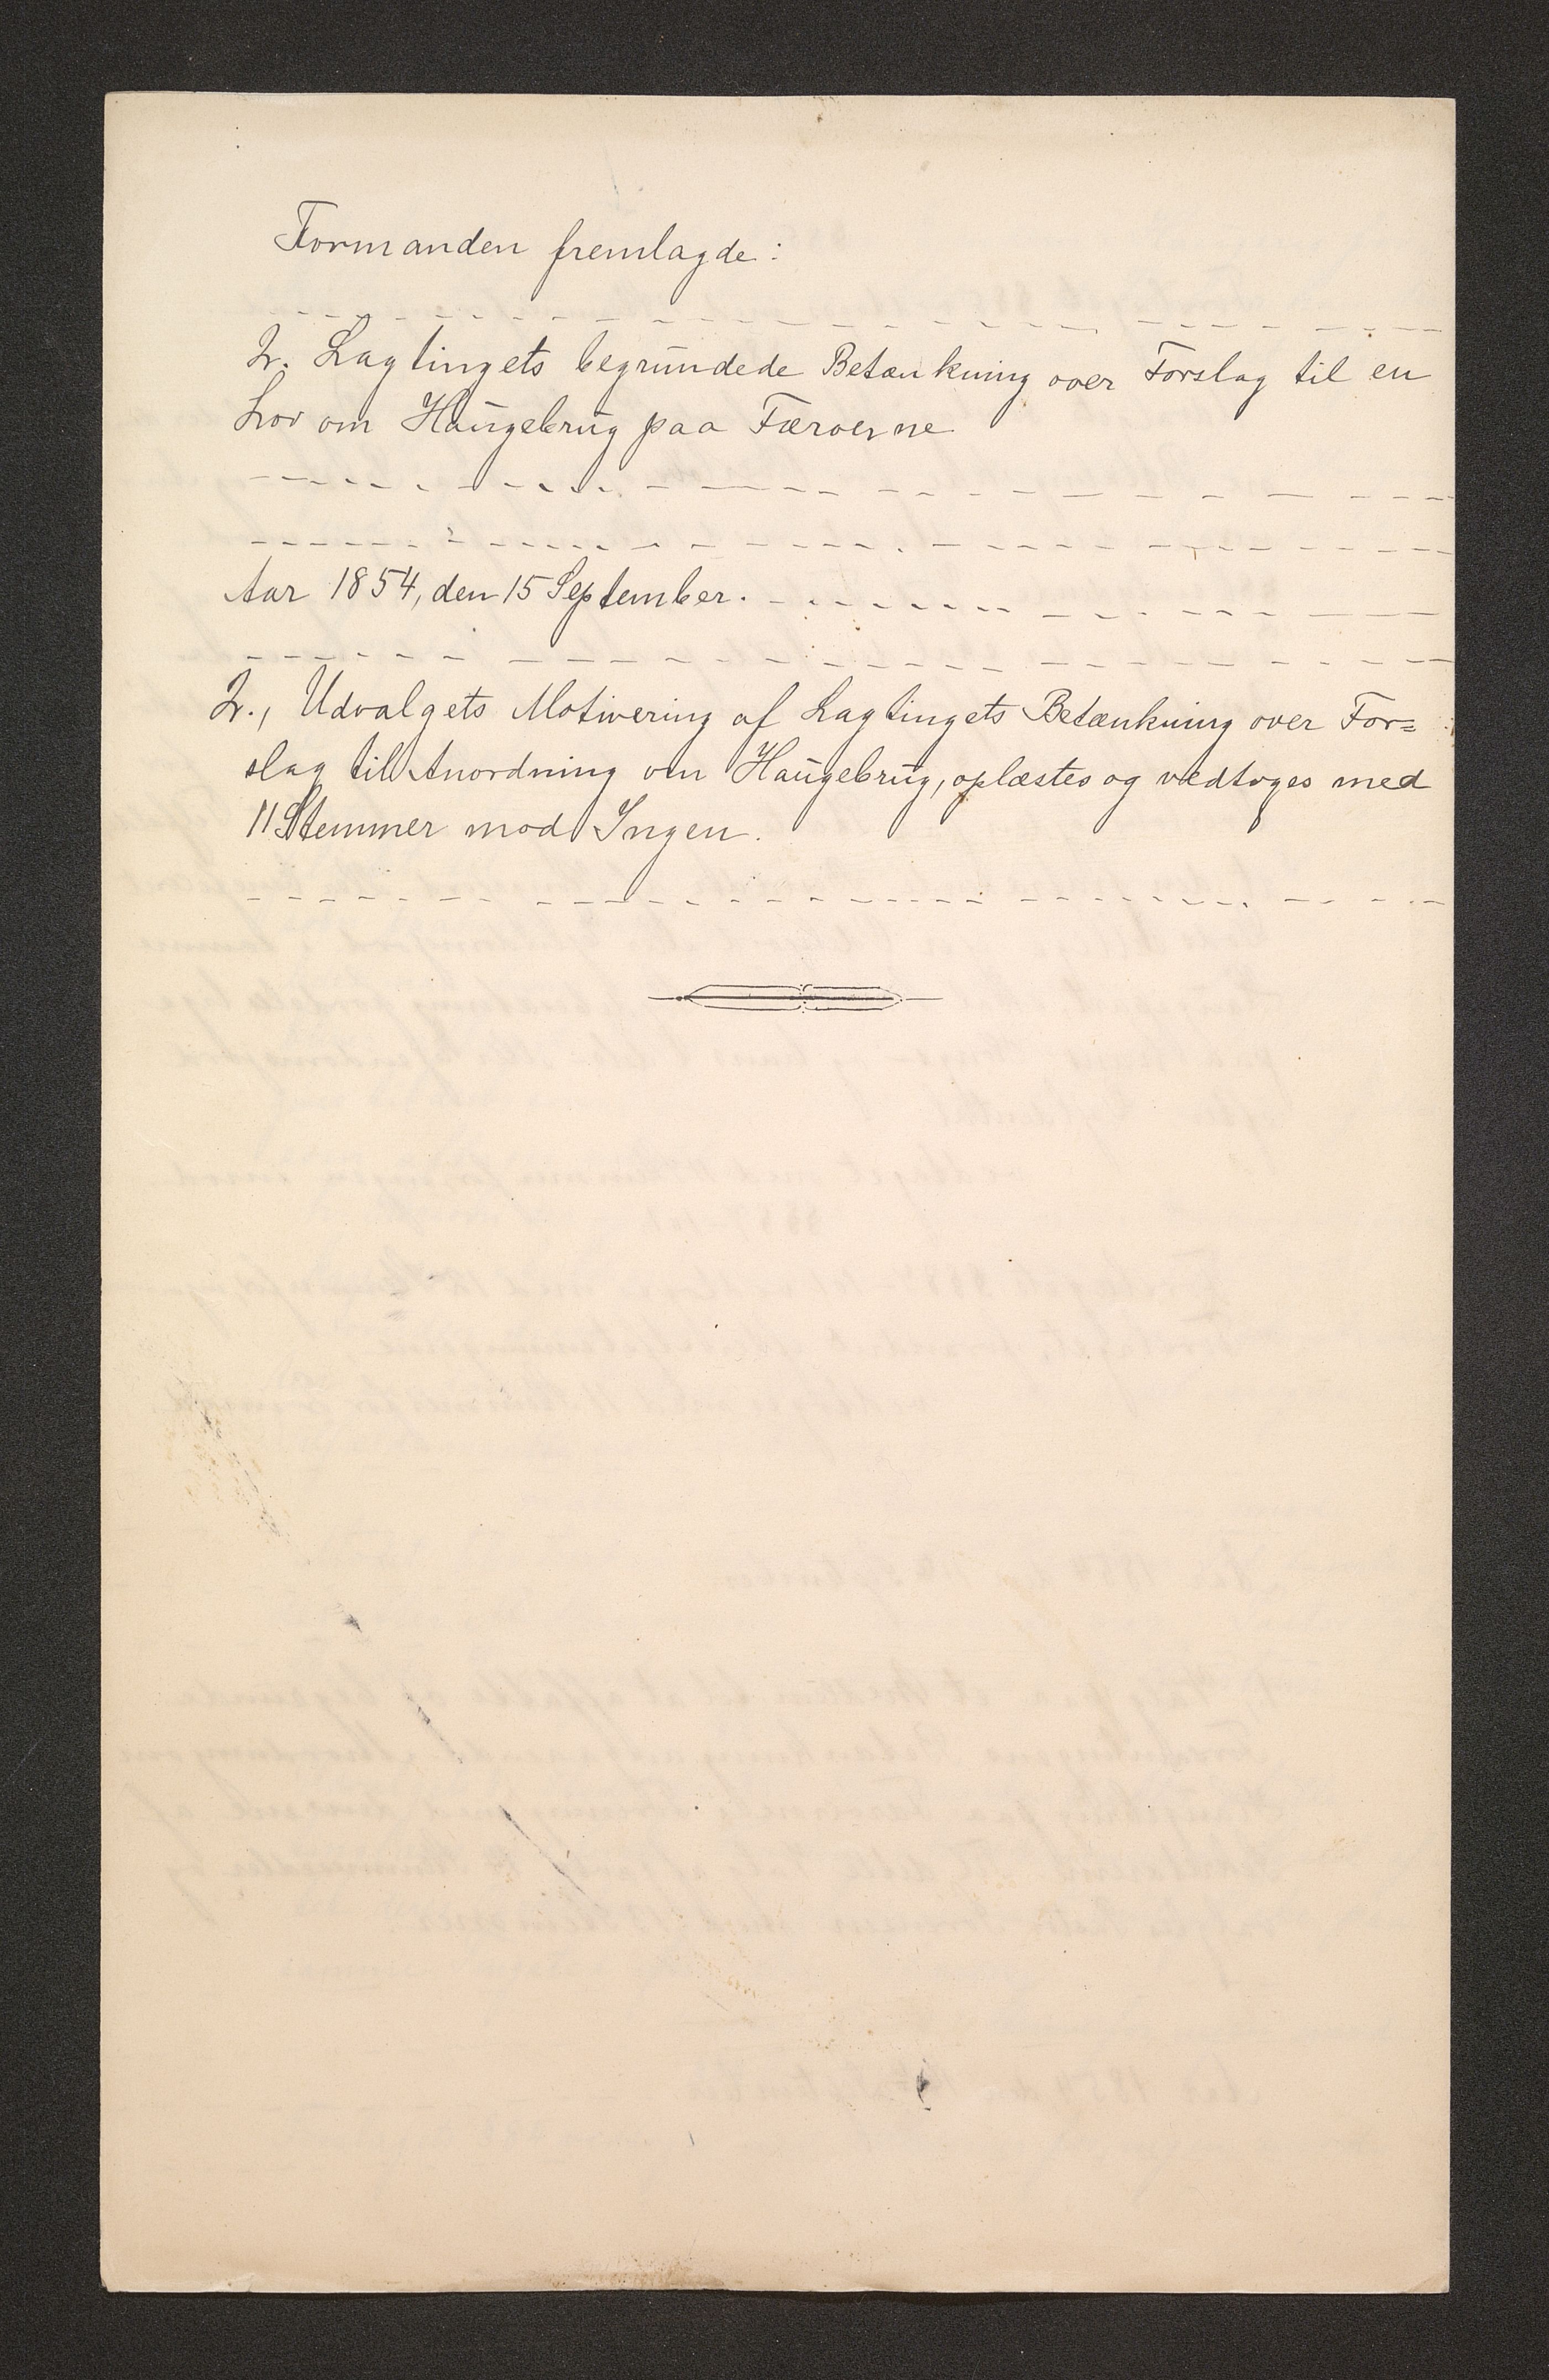 Formanden fremlagde:
2. Lagtingets begrundede Betænkning over Forslag til en
Lov om Haugebrug paa Færøerne
Aar 1854, den 15 September.
2., Udvalgets Motivering af Lagtingets Betænkning over For=
slag til Anordning om Haugebrug, oplæstes og vedtoges med
11 Stemmer mod Ingen.